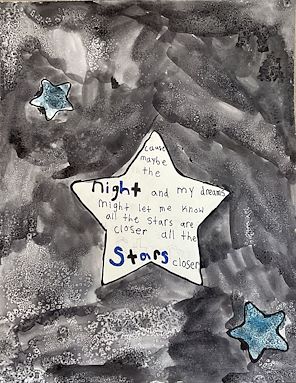 cause
maybe
the
night and my dreams
might let me know
all the stars are
closer all the
Stars closer